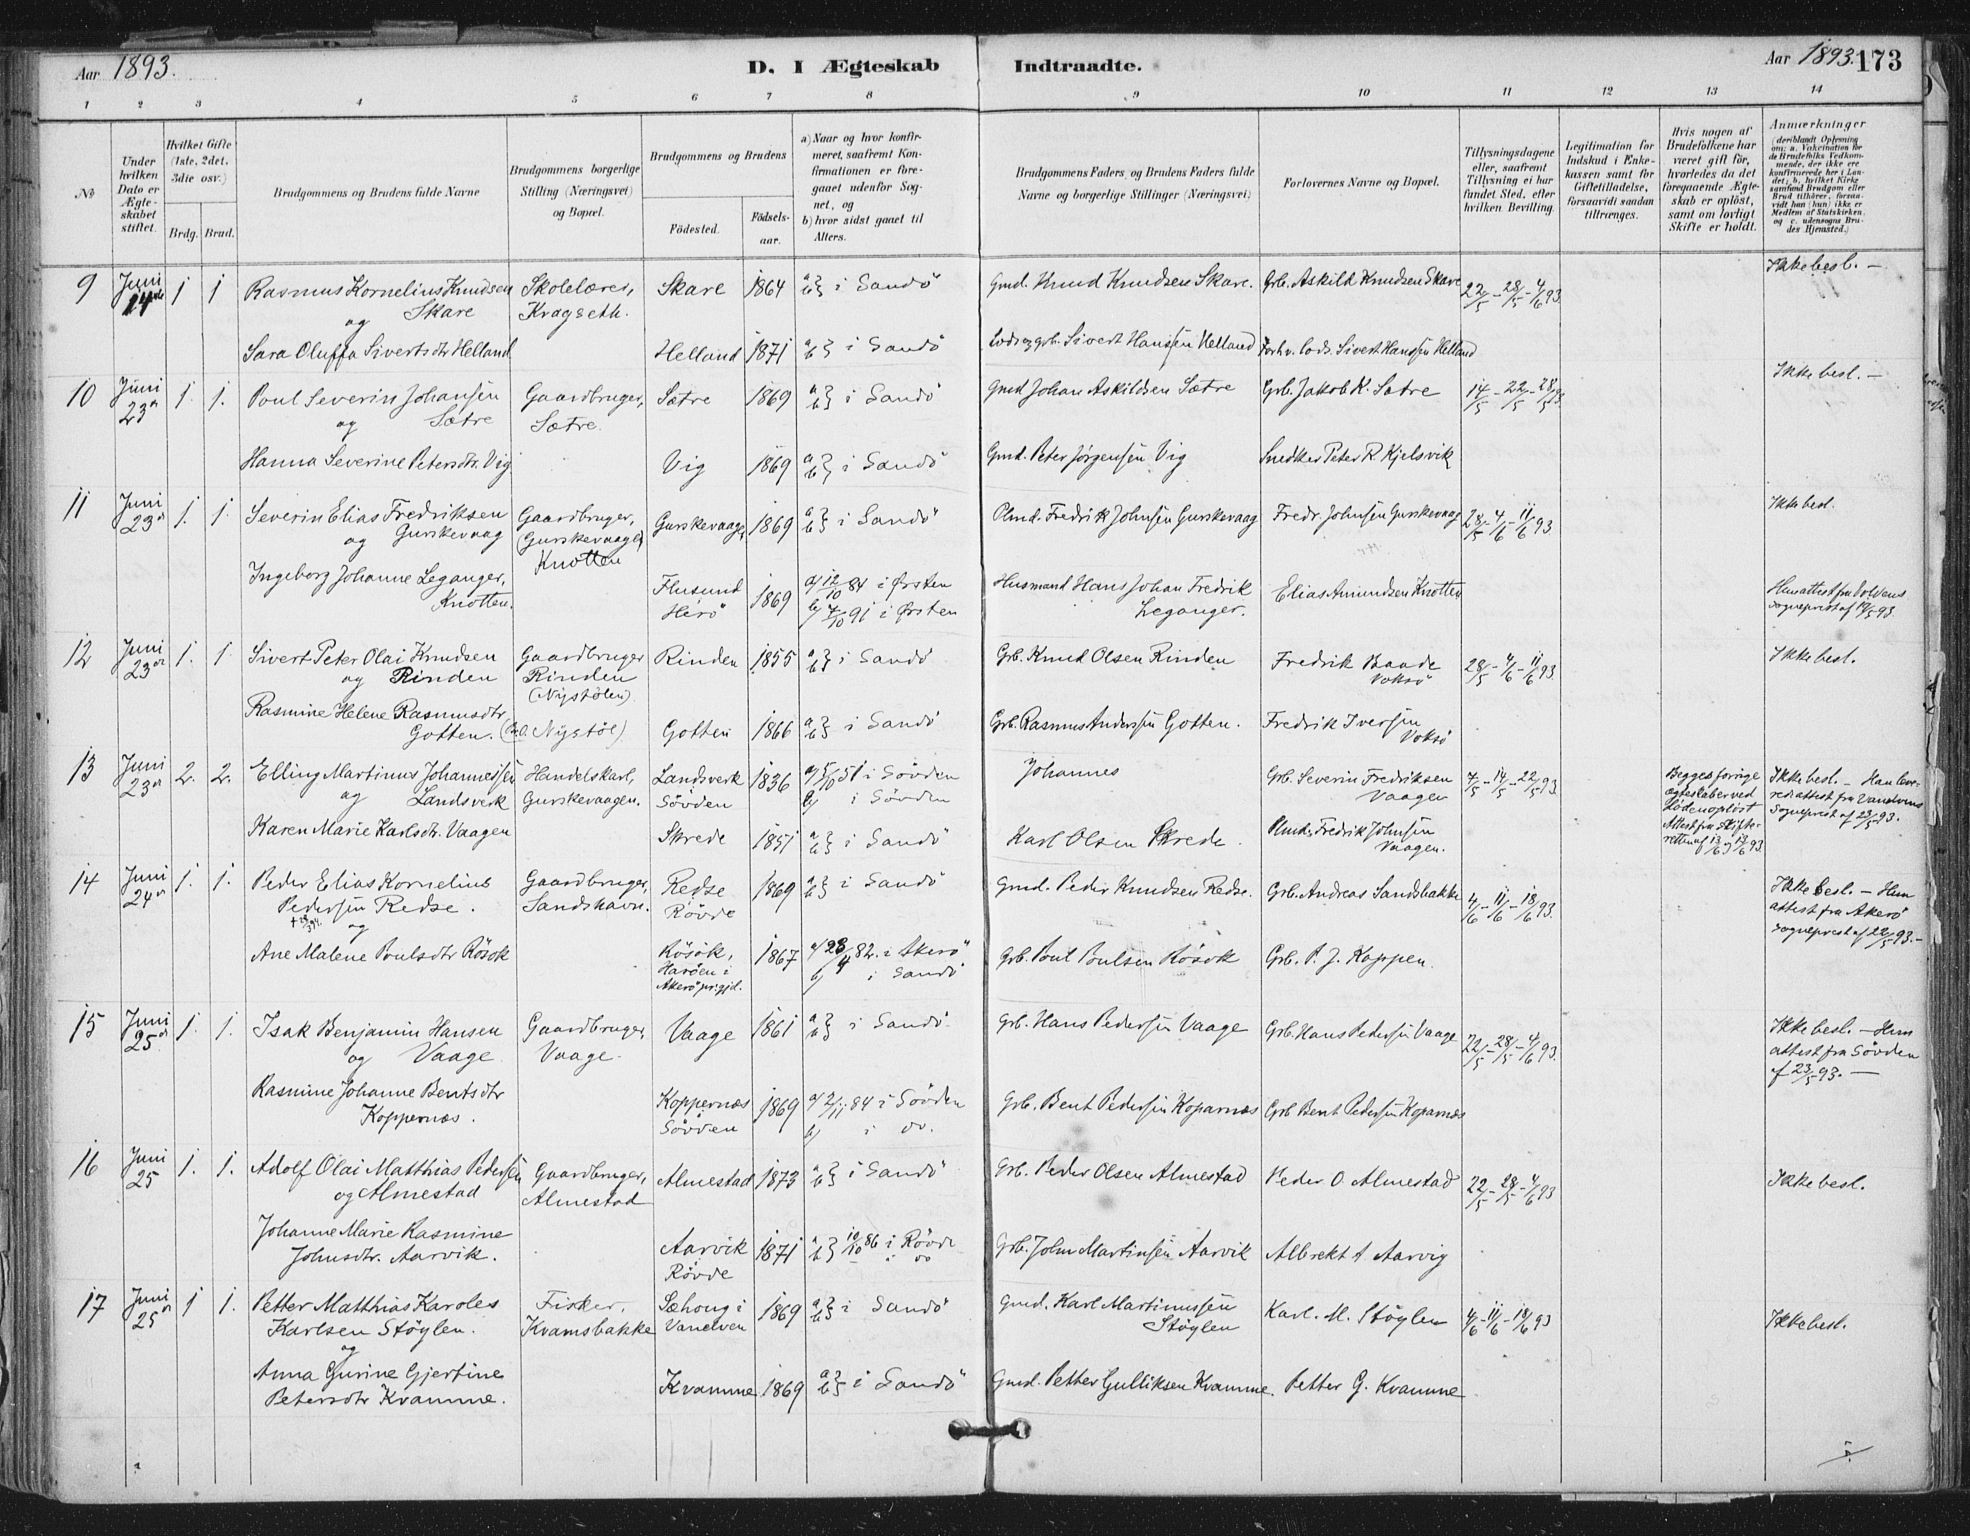 Aar 1893.
D. I Ægteskab Indtraadte.
Aar 1893. 173
1 2 3 4 5 6 7 8 9 10 11 12 13 14
№
Under hvilken Dato er Ægteskabet stiftet.
Hvilket Gifte (1ste, 2det, 3die osv.)
Brdg. Brud.
Brudgommens og Brudens fulde Navne
Brudgommens borgerlige Stilling (Næringsvei) og Bopæl.
Brudgommens og Brudens
Födested.
Födselsaar.
a) Naar og hvor konfirmeret, saafremt Konfirmationen er foregaaet udenfor Sognet, og
b) hvor sidst gaaet til Alters.
Brudgommens Faders og Brudens Faders fulde Navne og borgerlige Stillinger (Næringsvei)
Forlovernes Navne og Bopæl.
Tillysningsdagene eller, saafremt Tillysning ei har fundet Sted, efter hvilken Bevilling.
Legitimation for Indskud i Enkekassen samt for Giftetilladelse, forsaavidt saadan tiltrænges.
Hvis nogen af Brudefolkene har været gift för, hvorledes da det foregaaende Ægteskab er oplöst, samt om lovligt Skifte er holdt.
Anmærkninger (deriblandt Oplysning om: a. Vakcination for de Brudefolks Vedkommende, der ikke ere konfirmerede her i Landet; b. hvilket Kirkesamfund Brudgom eller Brud tilhörer, forsaavidt han (hun) ikke er Medlem af Statskirken, og c. udensogns Brudes Hjemsted.)
9 Juni 14de 1 1 Rasmus Kornelius Knudsen Skolelærer, Skare 1864 a b} i Sandö Gmd. Knud Knudsen Skare. Grb. Askild Knudsen Skare 22/5 - 28/5 - 4/6 93. Ikke besl. —
og Skare Kragseth.
Sara Oluffa Sivertsdtr Helland Helland 1871 a b} i Sandö Lods og grb. Sivert Hansen Helland Forhv. Lods. Sivert Hansen Helland
10 Juni 23de 1. 1. Poul Severin Johansen Gaardbruger, Sætre 1869 a b} i Sandö Gmd Johan Askildsen Sætre Grb. Jakob K. Sætre 14/5 - 22/5 - 28/5 93. Ikke besl. —
og Sætre Sætre.
Hanna Severine Petersdtr. Vig Vig 1869 a b} i Sandö Gmd. Peter Jørgensen Vig Snedker Peter R. Kjelsvik
11 Juni 23de 1. 1. Severin Elias Fredriksen Gaardbruger, Gurskevaag, 1869 a b} i Sandö Plmd. Fredrik Johnsen Gurskevaag Fredr. Johnsen Gurskevaag 28/5 - 4/6 - 11/6 93. Ikke besl.
og Gurskevaag (Gurskevaage) Knotten
Ingeborg Johanne Leganger, Knotten. Flusund Herö 1869 a/ 12/10 84 i Ørsten b/ 4/10 91 i Ørsten Husmand Hans Johan Fredrik Leganger. Elias Amundsen Knotten Hun attest fra Voldens sogneprest af 19/5 93.
12 Juni 23de 1. 1 Sivert Peter Olai Knudsen Gaardbruger Rinden 1855 a b} i Sandö Grb. Knud Olsen Rinden Fredrik Baade Voksö 28/5 - 4/6 - 11/6 93. Ikke besl.
og Rinden Rinden (Nystölen)
Rasmine Helene Rasmusdtr Gotten. Nystöl) Gotten 1866 a b} i Sandö Grb. Rasmus Anderssen Gotten. Fredrik Iversen Voksö
13 Juni 23de 2. 2. Elling Martinus Johannessen Handelskarl, Landsverk Sövden 1836 a/ 5/10 51 i Sövden b/ i Sövden Johannes Grb. Severin Fredriksen Vaagen 4/5 - 14/5 - 22/5 93. Begges forrige ægteskaber ved Döden oplöst Attest fra Skifteretten af 13/6 og 19/6 93. Ikke besl. — Han leveret attest fra Vanelvens Sogneprest af 23/5 93.
og Landsverk Gurskevaagen.
Karen Marie Karlsdtr. Vaagen Skrede 1851 a b} i Sandö Karl Olsen Skrede. Plmd. Fredrik Johnsen Vaagen.
14 Juni 24de 1. 1. Peder Elias Kornelius Gaardbruger, Redse Rövde 1869 a b} i Sandö Gmd. Peder Knudsen Redse. Grb. Andreas Sandsbakke 4/6 - 11/6 - 18/6 93. Ikke besl. — Hun attest fra Akerö sogneprest af 22/5 93. —
Pedersen Redse. Sandshavn.
og
Ane Malene Poulsdtr Rösok Rösök, Haröen i Akerö prgjd. 1867 a/ 23/4 82. i Akerö b/ i Sandö Grb. Poul Poulsen Rösok Grb. P. J. Koppen.
15 Juni 25de 1. 1. Isak Benjamin Hansen Gaardbruger, Vaage 1861 a b} i Sandö Grb. Hans Pedersen Vaage Grb. Hans Pedersen Vaage 22/5 - 28/5 - 4/6 93. Ikke besl. — Hun attest fra Sövden af 23/5 93. —
og Vaage Vaage.
Rasmine Johanne Bentsdtr Koppernæs. Koppernæs Sövden 1869 a/ 2/11 84 i Sövden b/ i do. Grb. Bent Pedersen Koparnæs Grb Bent Pedersen Koparnæs
16 Juni 25 1. 1. Adolf Olai Matthias Pedersen Gaardbruger, Almestad 1873 a b} i Sandö Grb. Peder Olsen Almestad Peder O. Almestad 22/5 - 28/5 - 4/6 93 Ikke besl.
og Almestad Almestad
Johanne Marie Rasmine Johnsdtr. Aarvik. Aarvik Rövde 1871 a b} 10/10 86 i Rövde i do Grb. John Martinsen Aarvik Albrekt A Aarvig
17 Juni 25de 1 1. Petter Matthias Karoles Fisker, Sæhong i Vanelven 1869 a b} i Sandö Gmd. Karl Martinussen Støylen Karl. M. Støylen 4/6 - 11/6 - 18/6 93 Ikke besl.
Karlsen Støylen. Kvamsbakke
og
Anna Gurine Gjertine Petersdtr Kvamme. Kvamme 1869 a b} i Sandö Gmd. Petter Gulliksen Kvamme. Petter G. Kvamme